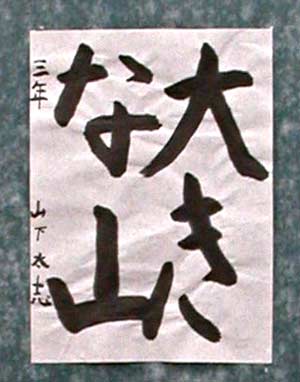 大き
な山
三年 山下太志